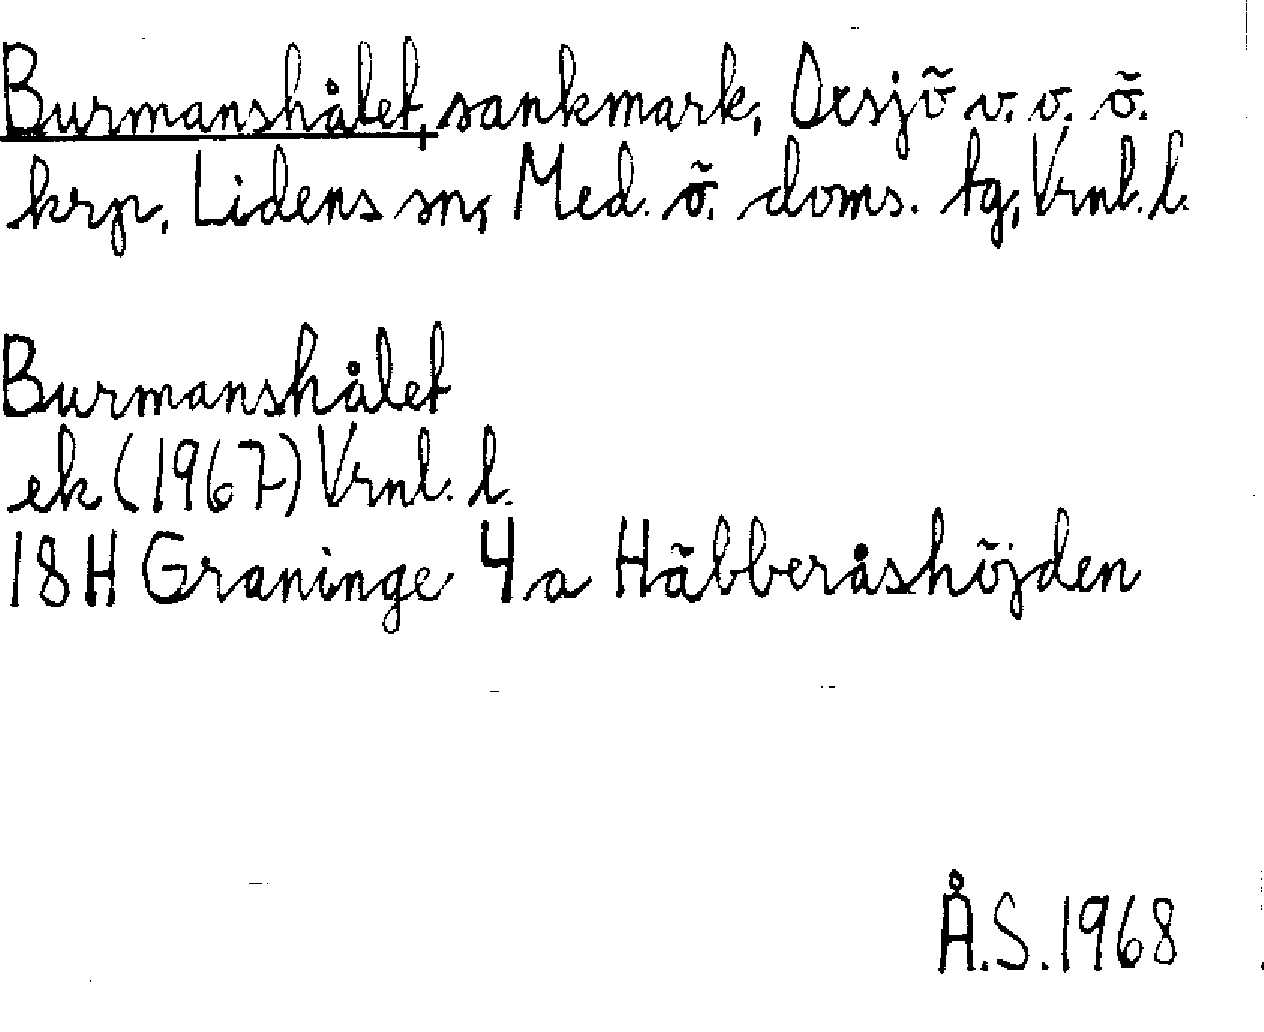 Burmanshålet, sankmark, Oxsjö v. o. ö.
krp, Lidens sn, Med. ö. doms. tg, Vrnl. l.
Burmanshålet
ek (1967) Vrnl. l.
18H Graninge 4a Häbberåshöjden
Å.S. 1968